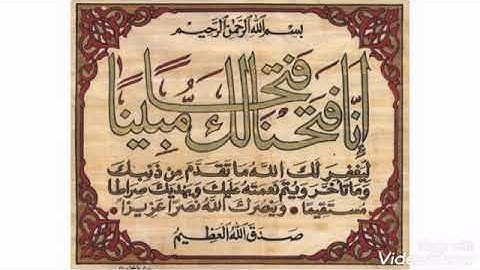 بسم الله الرحمن الرحيم
إنا فتحنا لك فتحا مبينا
ليغفر لك الله ما تقدم من ذنبك
وما تأخر ويتم نعمته عليك ويهديك صراطا
مستقيما • وينصرك الله نصرا عزيزا •
صدق الله العظيم